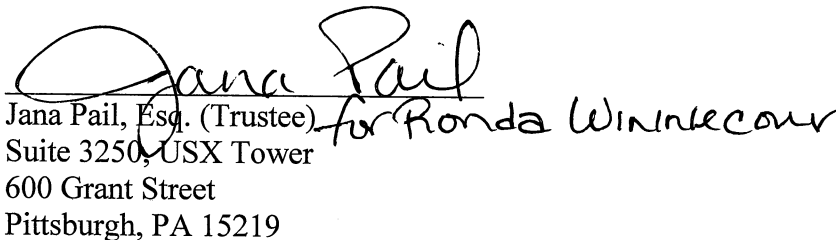 Jana Pail
Jana Pail, Esq. (Trustee) for Ronda Winnecour
Suite 3250, USX Tower
600 Grant Street
Pittsburgh, PA 15219